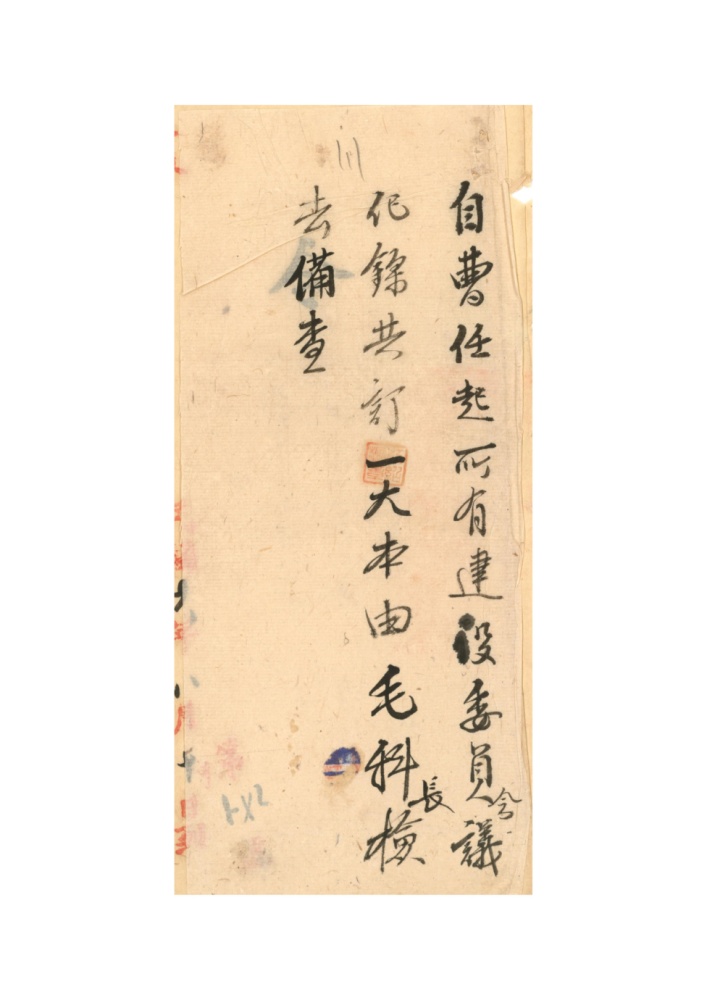 自曹任起所有建设委員会議
紀錄共訂一大本由毛科長檢
去備查